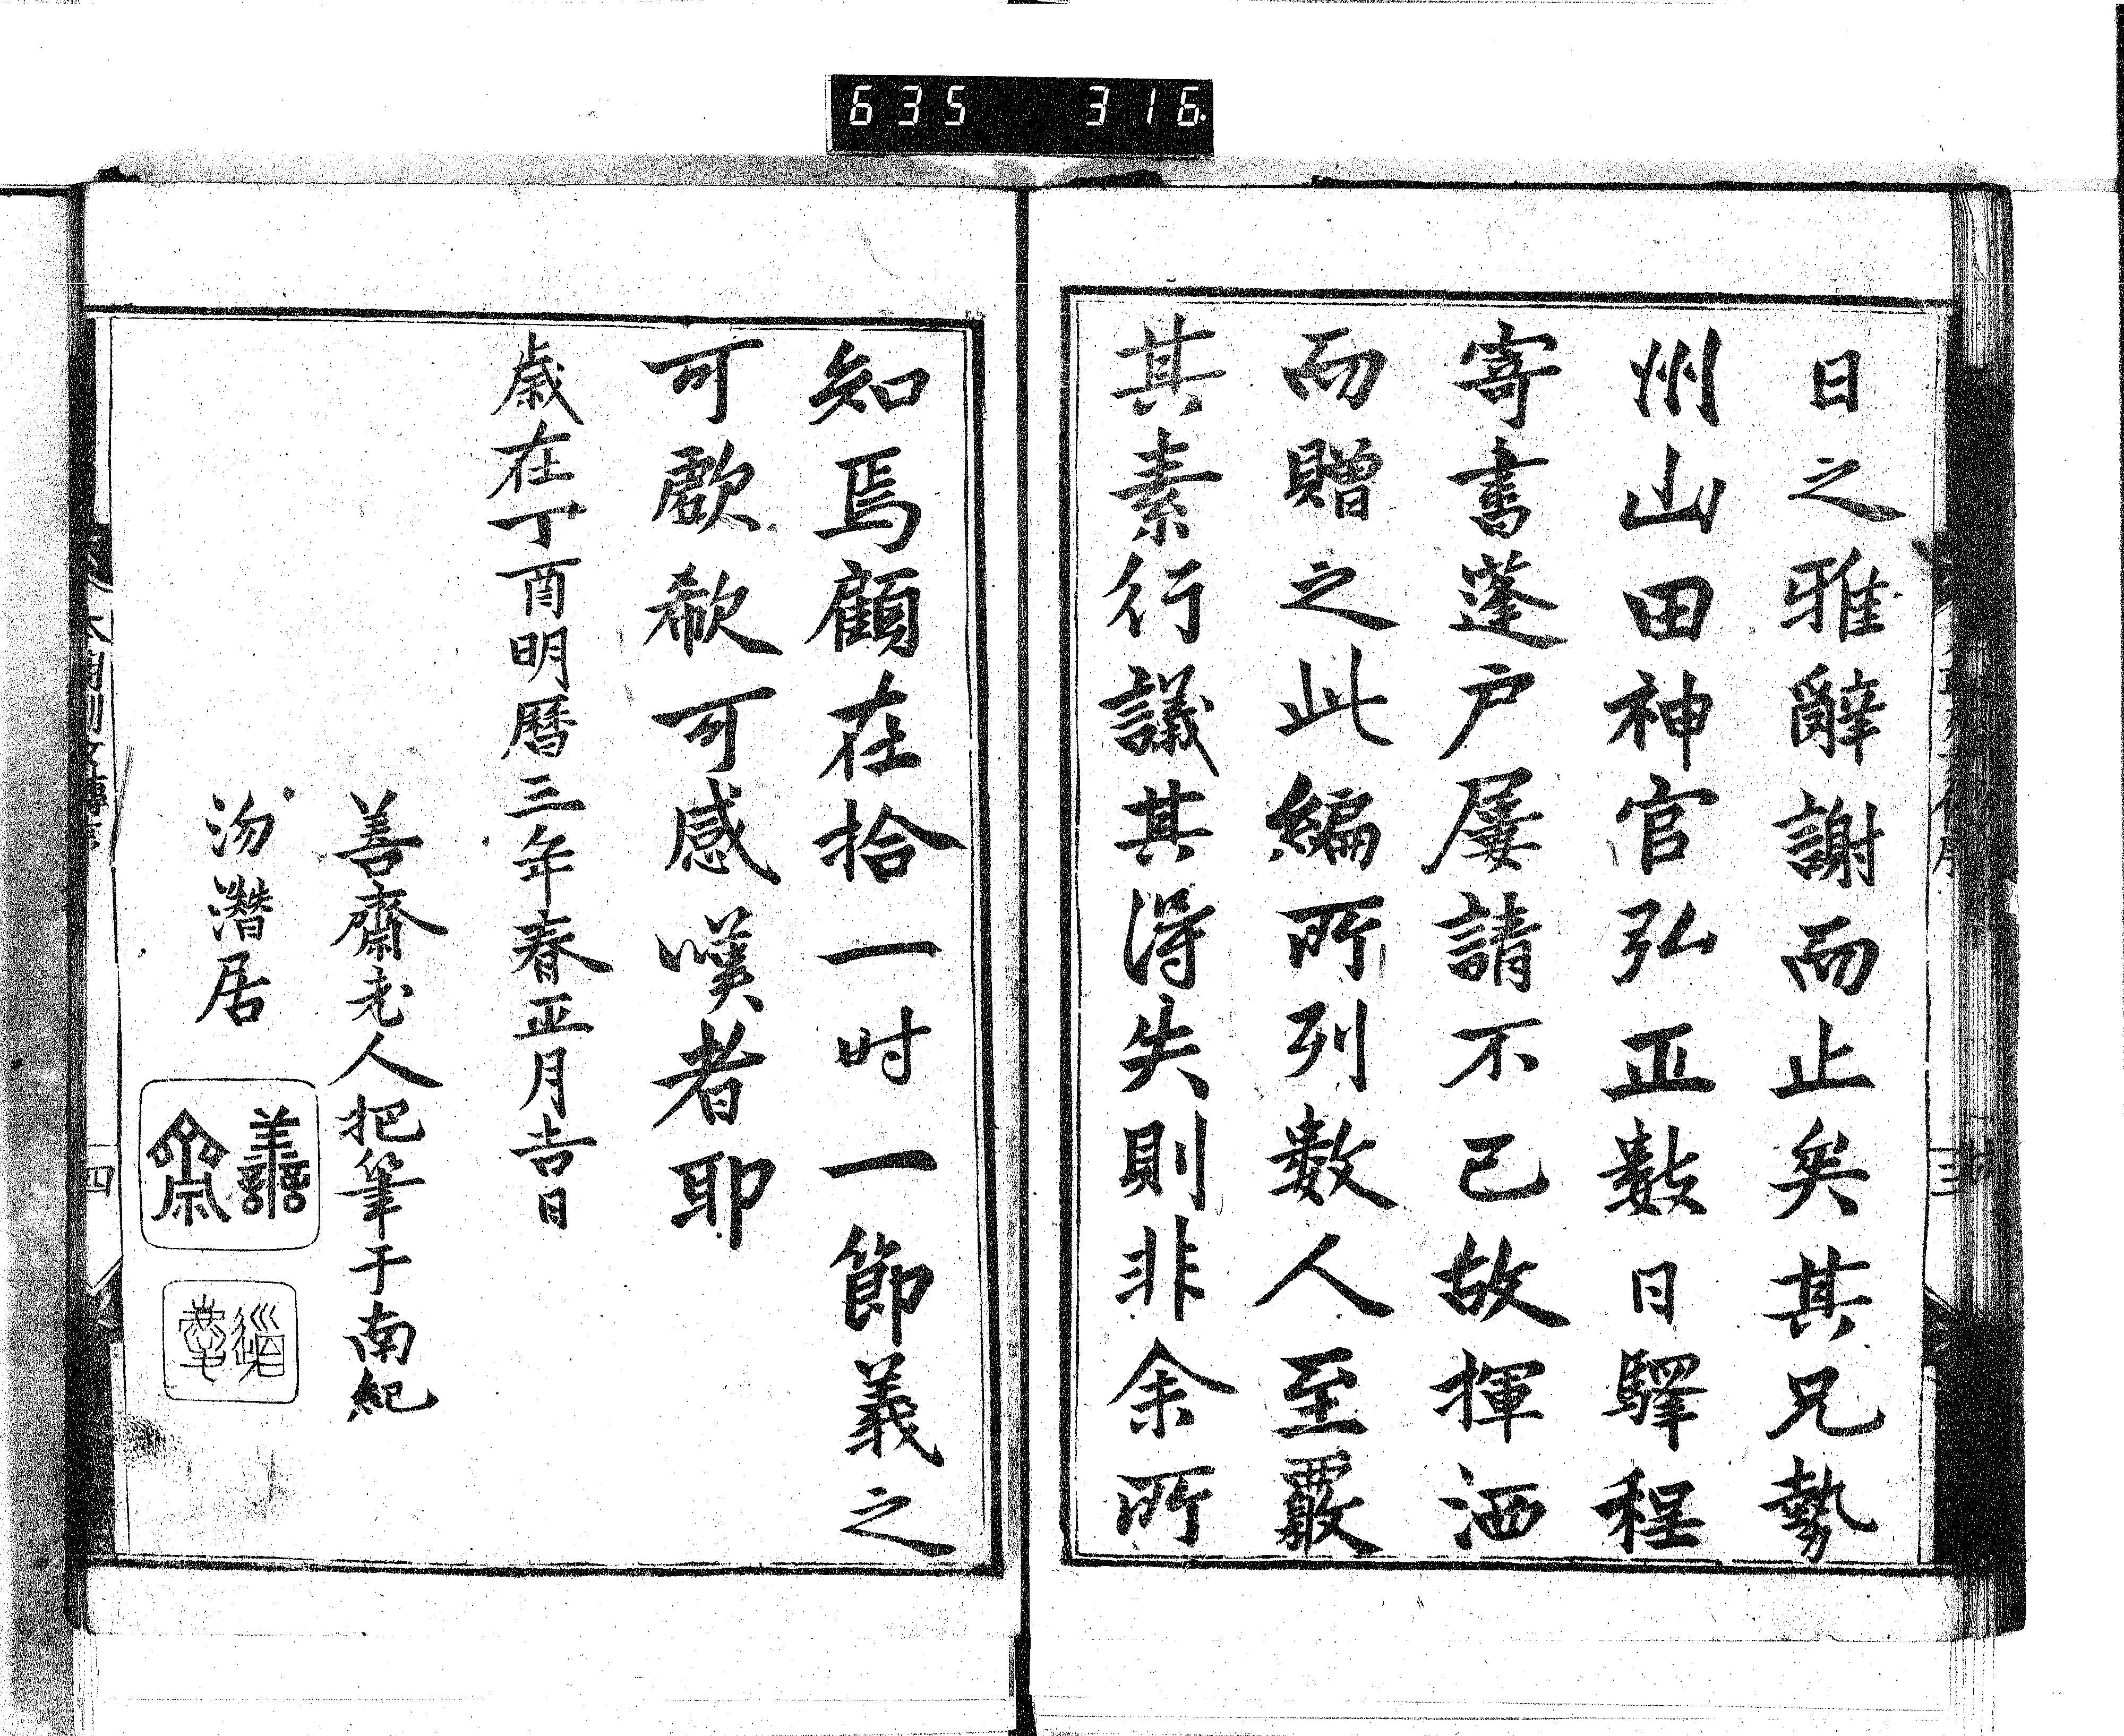 635 316
日之雅辭謝而止矣其兄勢
州山田神官弘正數日驛程
寄書蓬戸屡請不已故揮洒
而贈之此編所列数人至覈
其素行議其得失則非余所
知焉顧在拾一时一節義之
可歔欷可感嘆者耶
歳在丁酉明暦三年春正月吉日
善齋老人把筆于南紀
沕潛居
善齋
四
三